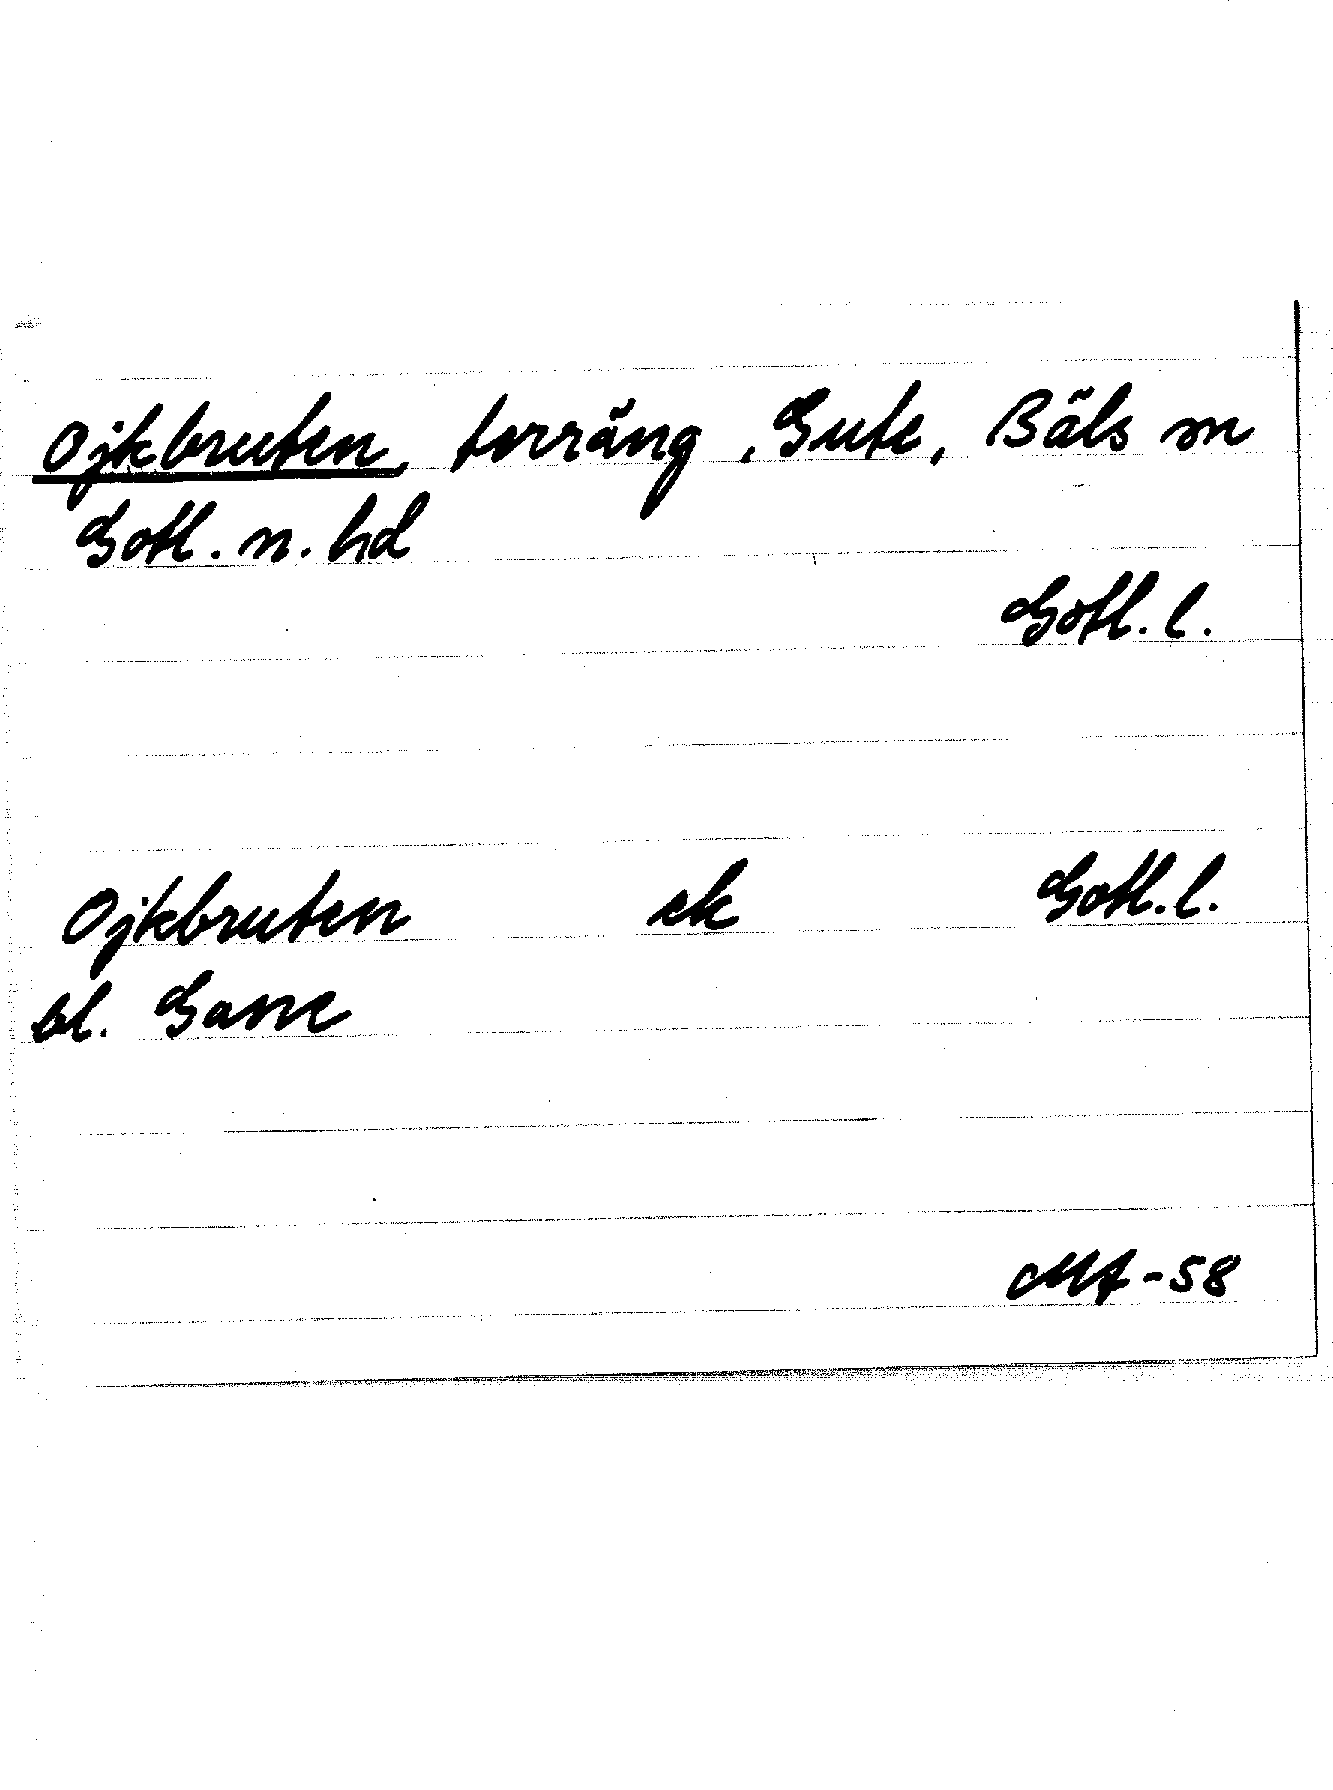 Ojkbruten, torräng, Gute, Bäls sn
Gotl. n. hd
Gotl. l.
Ojkbruten ek Gotl. l.
bl. Gane
MA-58